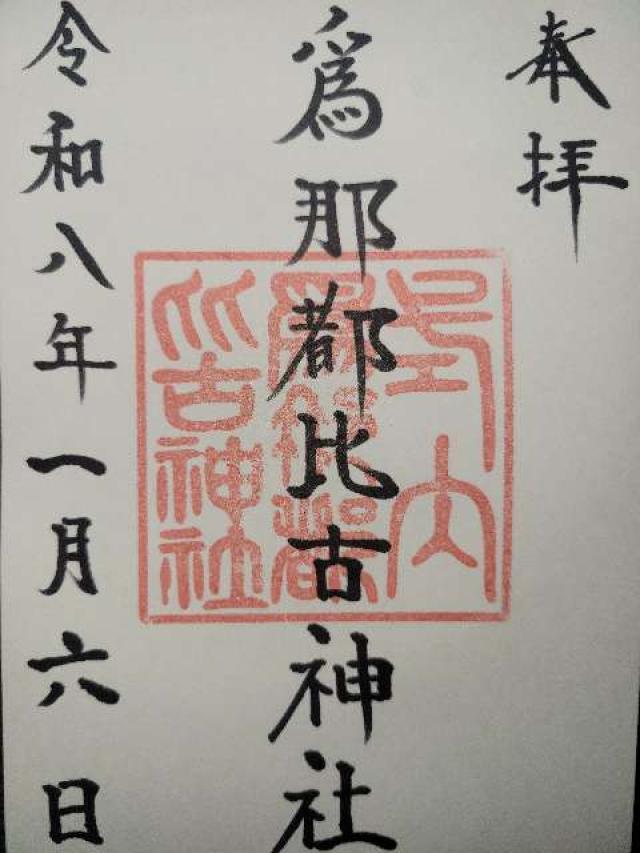 奉拝
爲那都比古神社
式内
爲那都
比古神社
令和八年一月六日